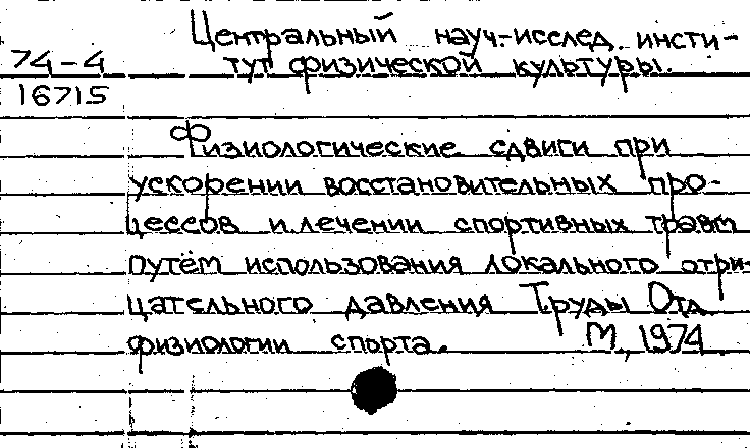 Центральный науч.-исслед. инсти-
74-4 тут физической культуры.
16715
Физиологические сдвиги при
ускорении восстановительных про-
цессов и лечении спортивных травм
путём использования локального отри-
цательного давления Труды Отд
физиологии спорта. М., 1974